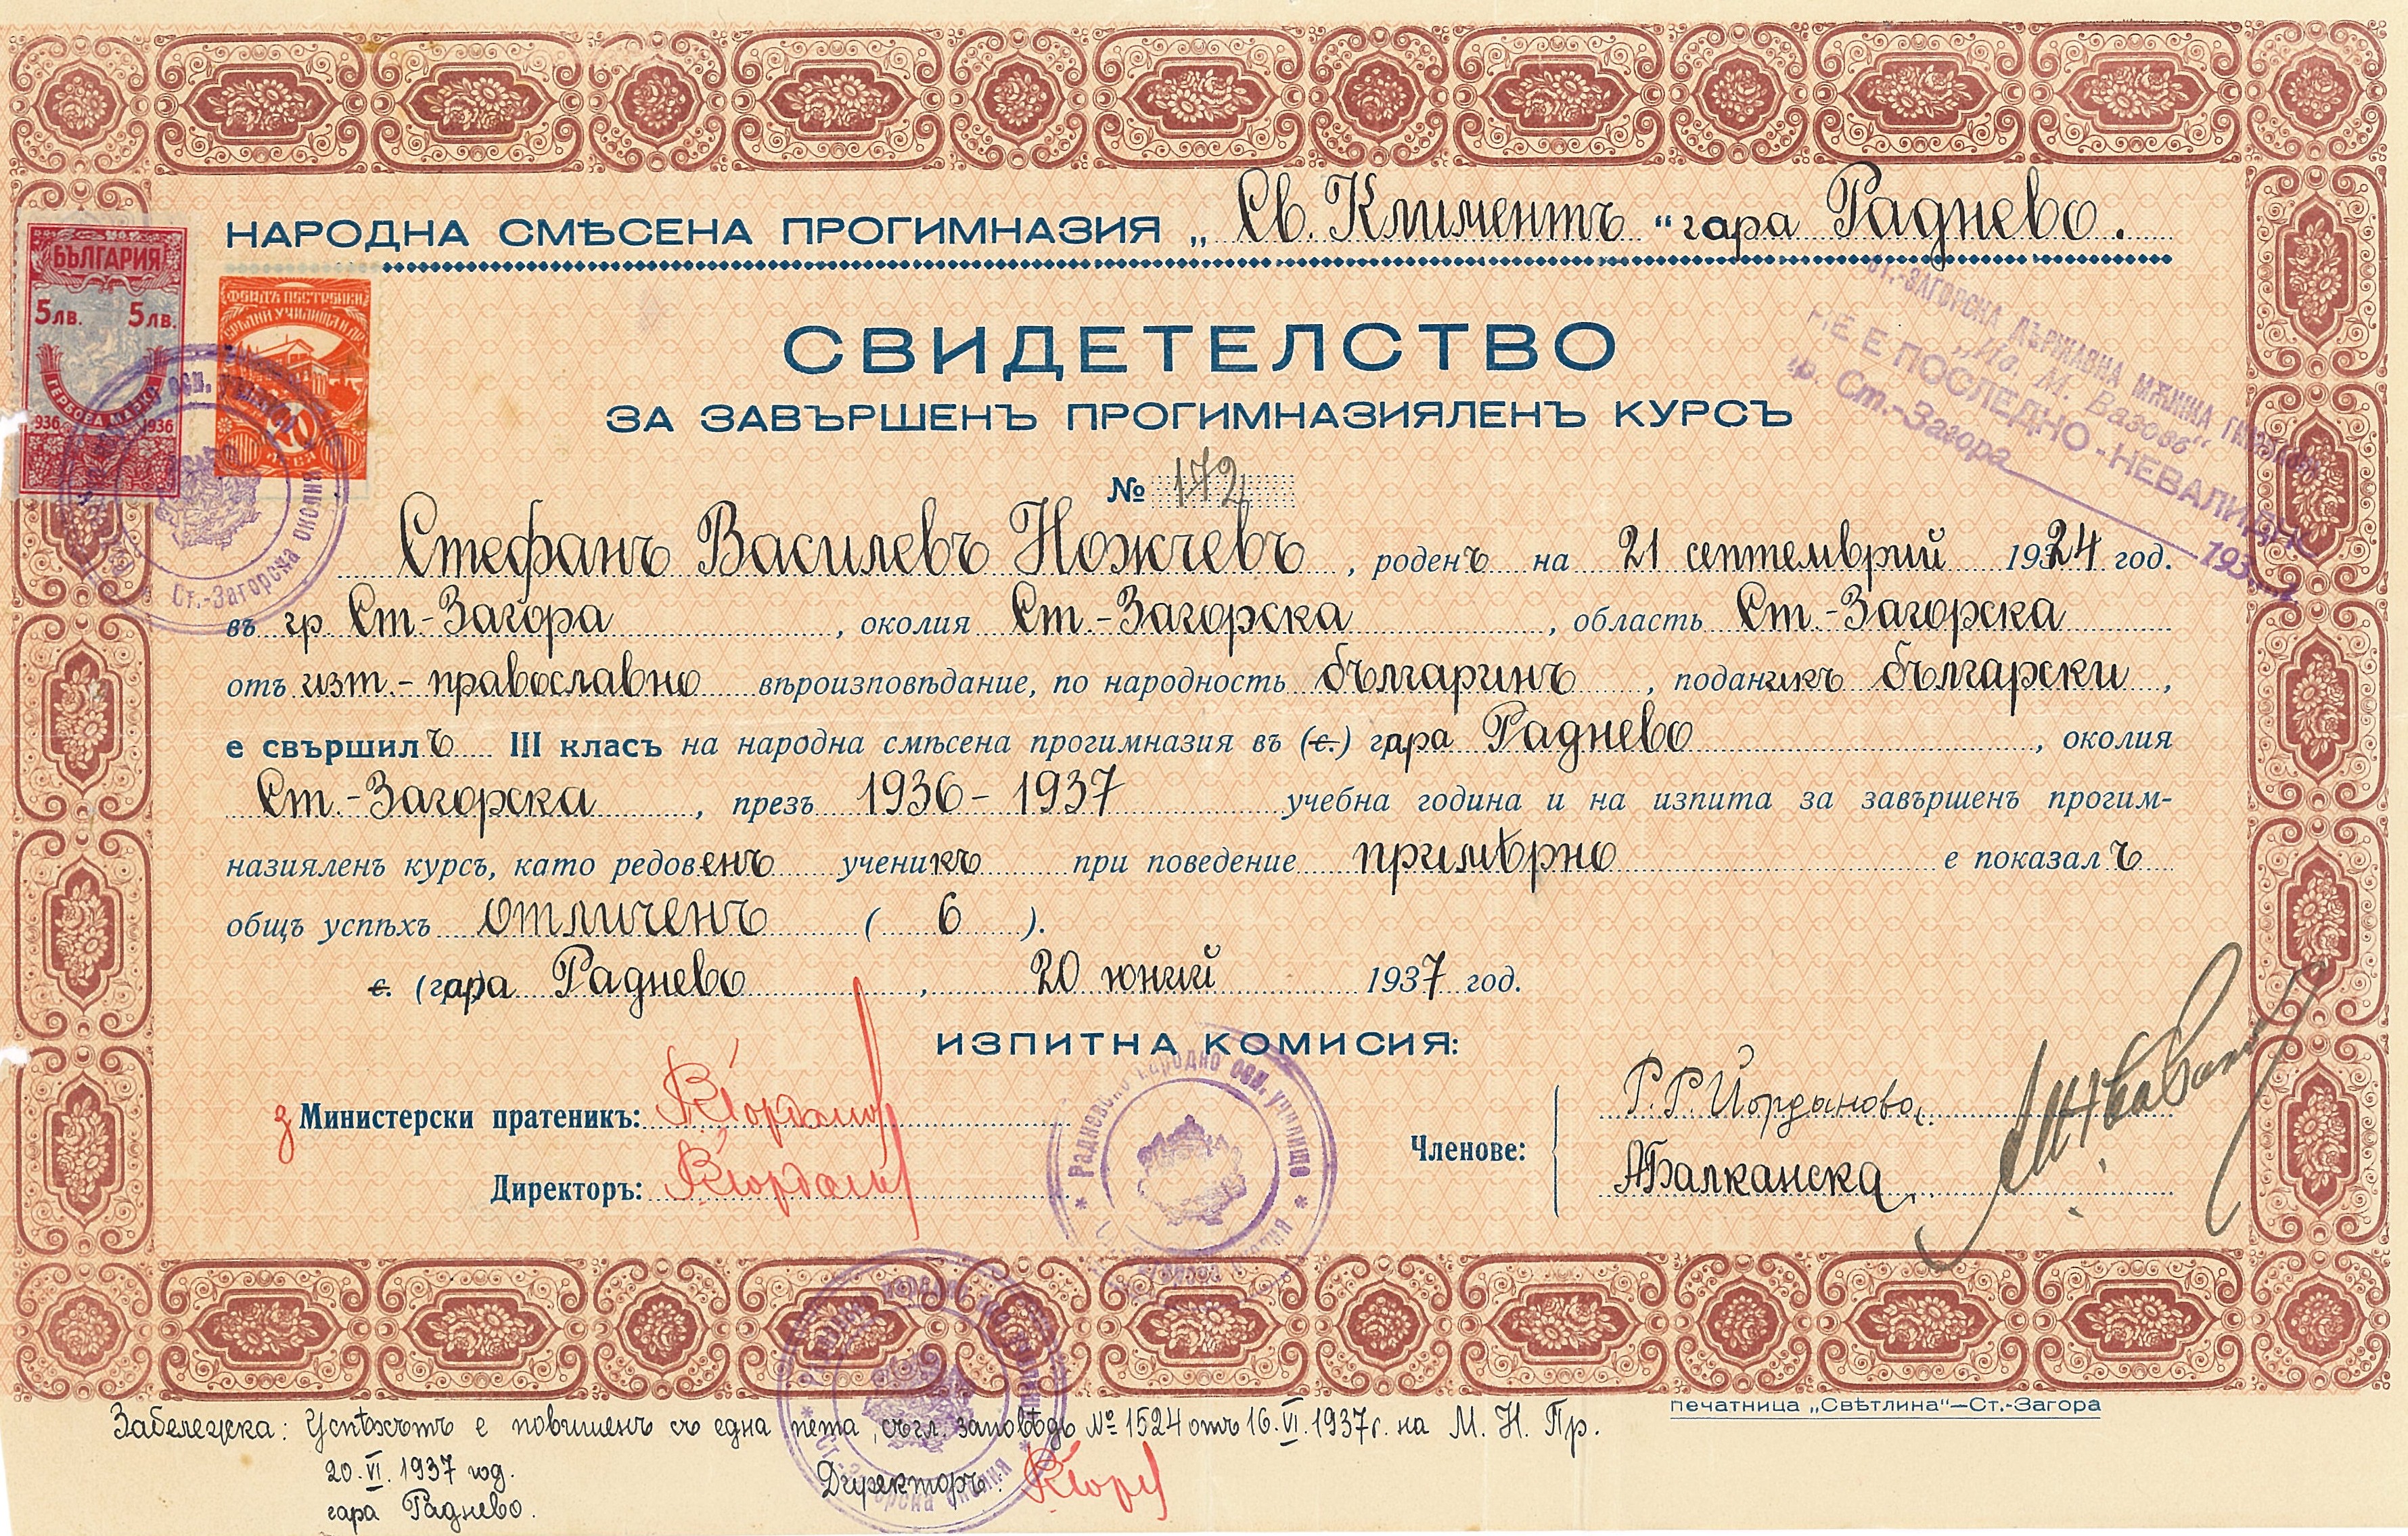 НАРОДНА СМѢСЕНА ПРОГИМНАЗИЯ „Св. Климентъ“ гара Раднево.
БЪЛГАРИЯ
5лв. 5лв.
ГЕРБОВА МАРКА
936 1936
ФОНДЪ ПОСТРОЙКИ
УЧИЛИЩА
20
ЛЕВА
СВИДЕТЕЛСТВО
ЗА ЗАВЪРШЕНЪ ПРОГИМНАЗИЯЛЕНЪ КУРСЪ
СТ.-ЗАГОРСКА ДЪРЖАВНА МѪЖКА
„Ив. М. Вазовъ“
НЕ Е ПОСЛЕДНО - НЕВАЛИДН
гр. Ст.-Загора 193
№ 172
Стефанъ Василевъ Ножчевъ, роденъ на 21 септемврий 1924 год.
въ гр. Ст.-Загора, околия Ст.-Загорска, область Ст.-Загорска
отъ изт.-православно вѣроизповѣдание, по народность българинъ, поданикъ български,
е свършилъ III класъ на народна смѣсена прогимназия въ (с.) гара Раднево, околия
Ст.-Загорска, презъ 1936-1937 учебна година и на изпита за завършенъ прогим-
назияленъ курсъ, като редовенъ ученикъ при поведение примѣрно е показалъ
общъ успѣхъ отличенъ (6).
с. (гара) Раднево, 20 юний 1937 год.
ИЗПИТНА КОМИСИЯ:
з Министерски пратеникъ: ВЙорданов
Директоръ: ВЙорданов
Членове:
Р. Р. Йорданова
АБалканска
Радневско народно осн. училище
Ст.-Загорска околия
печатница „Свѣтлина“—Ст.-Загора
Забележка: Успѣхътъ е повишенъ съ една пета, съгл. заповѣдь № 1524 отъ 16.VI.1937 г. на М. Н. Пр.
20.VI.1937 год.
гара Раднево.
Директоръ: